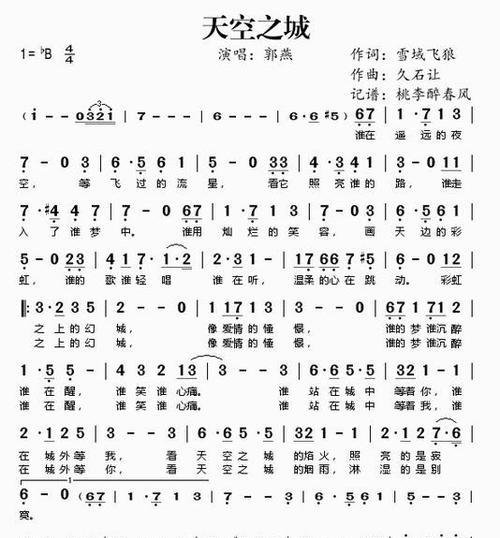 天空之城
1=♭B 4/4 演唱：郭燕 作词：雪域飞狼
作曲：久石让
记谱：桃李醉春风
(i - - 0321 | 7 - - - | 6 - - - | 6·6 ♯5) 67 | 1·7 1 3
谁在 遥远的夜
7 - 0 3 | 6·5 6 1 | 5 - 0 33 | 4 3 4·1 | 3 - 0 11
空， 等 飞过的流 星， 看它 照亮谁的 路， 谁走
7·♯4 4 7 | 7 - 0 67 | 1·7 1 3 | 7 - 0 3 | 6·5 6 1
入了谁梦 中。 谁用 灿烂的笑 容， 画 天边的彩
5 - 0 23 | 4 1 7· 1·2 | 3 - 3 - | 3 2 1 7 ♯5 | 6 - 0 12
虹， 谁的 歌谁轻唱 谁在听， 温柔的心在跳 动。 彩虹
‖: 3·2 3 5 | 2 - - 0 | 1 17 1 3 | 3 - - - | 67 1 71 2
之上的幻 城， 像爱情的憧 憬， 谁的梦谁沉醉
之上的幻 城， 像爱情的憧 憬， 谁的梦谁沉醉
1·5 5 - | 4 3 2 13 | 3 - - 3 | 6 - 5 - | 3 2 1 -
谁在醒， 谁笑谁心痛。 谁 站在城中 等着你， 谁
谁在醒， 谁笑谁心痛。 谁 站在城中 等着我， 谁
2·1 2 5 | 3 - - 3 | 6·6 5·5 | 3 2 1 - | 2·1 2 7·6
在城外等 我， 看 天空之城 的焰火， 照 亮的是寂
在城外等 你， 看 天空之城 的烟雨， 淋 湿的是别
1
6 - 0 (67 | 1·7 1 3 | 7 - - 3 | 6·5 6 1 | 5 - - -
寞。